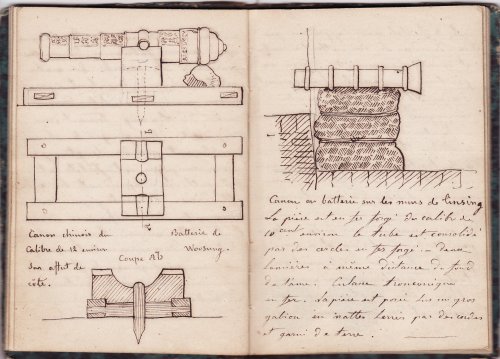 Canon chinois du
Calibre de 12 environ
Son affut de
côté.
Batterie de
Woosung.
Coupe Ab
Canon en batterie sur les murs de Linsing
La pièce est en fer forgé du calibre de
10 cent environ le tube est consolidé
par des cercles en fer forgé
lumières à même distance du fond
de l'ame. Culasse tronconique
en fer. La pièce est posée sur un gros
en nattes par des cordes
et garni de terre.